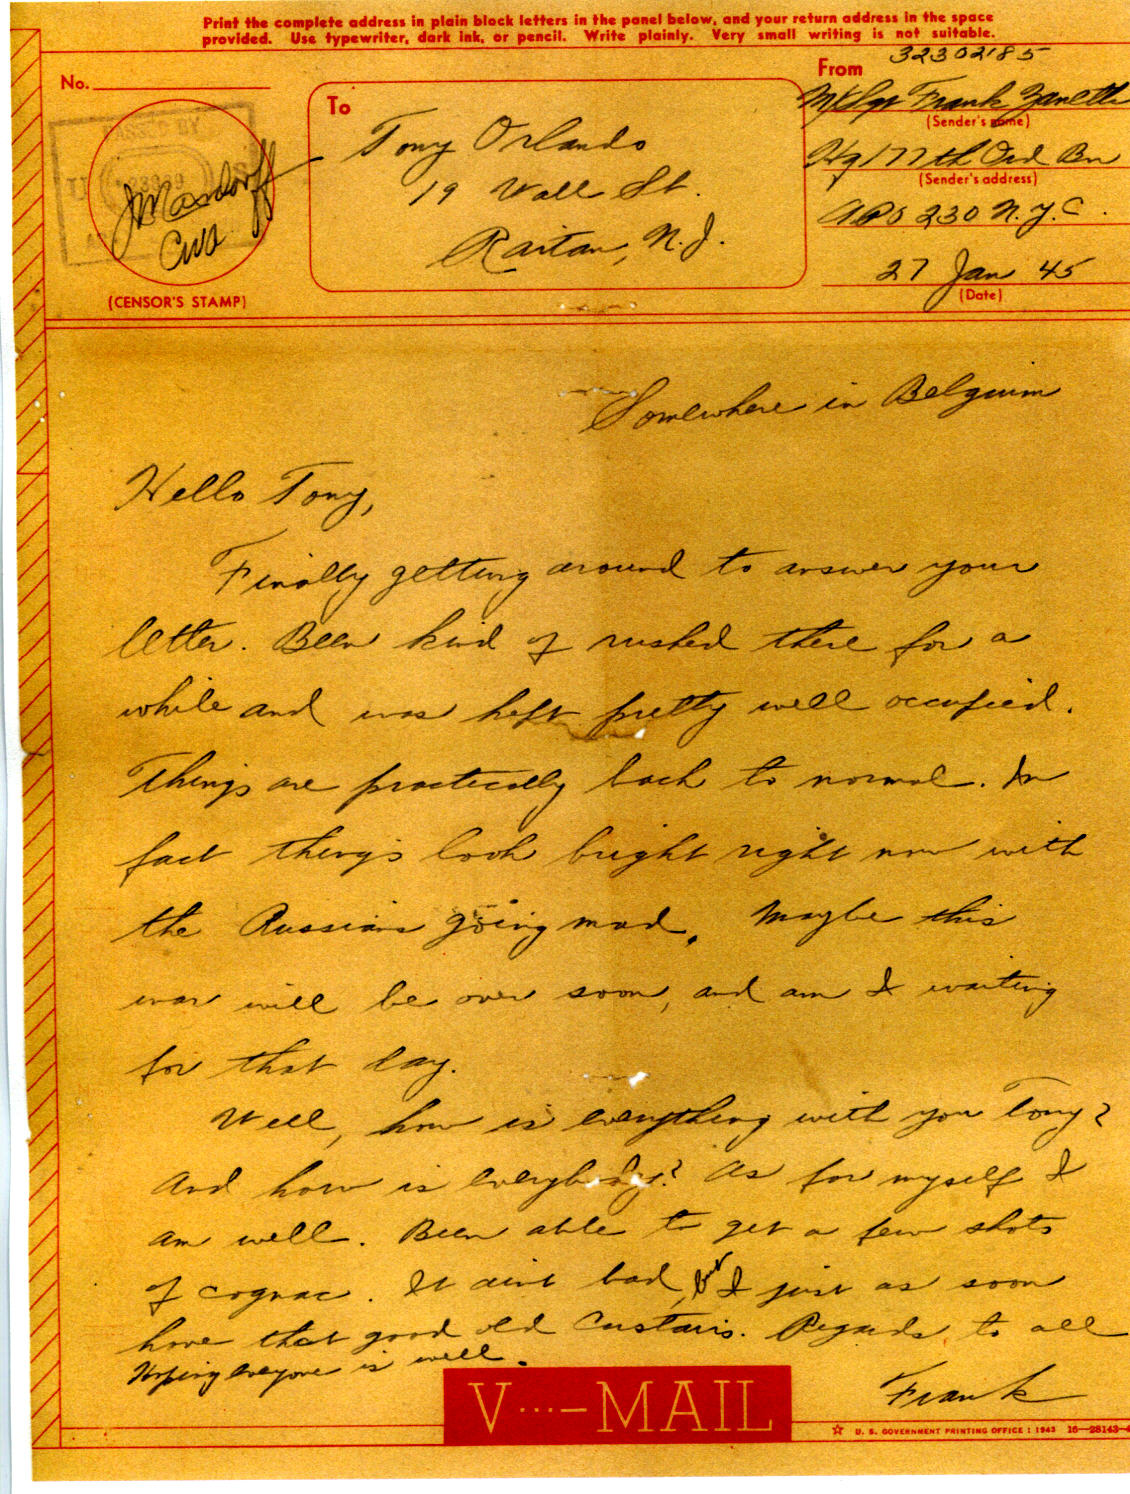 Print the complete address in plain block letters in the panel below, and your return address in the space
provided. Use typewriter, dark ink, or pencil. Write plainly. Very small writing is not suitable.
No.
PASSED BY
(CENSOR'S STAMP)
CWO
To
Tony Orlando
19 Wall St.
Raritan, N.J.
From
32302185
Frank Zanetti
(Sender's name)
Hq 177th Ord Bn
(Sender's address)
APO 230 N.Y.C.
27 Jan 45
(Date)
Somewhere in Belgium
Hello Tony,
Finally getting around to answer your
letter. Been kind of rushed there for a
while and was kept pretty well occupied.
Things are practically back to normal. In
fact things look bright right now with
the Russians going mad. Maybe this
war will be over soon, and am I waiting
for that day.
Well, how is everything with you Tony?
And how is everybody? As for myself I
am well. Been able to get a few shots
of cognac. It aint bad, but I just as soon
have that good old Custairs. Regards to all
Hoping everyone is well.
Frank
V···— MAIL
☆ U. S. GOVERNMENT PRINTING OFFICE : 1943 16—28143-4